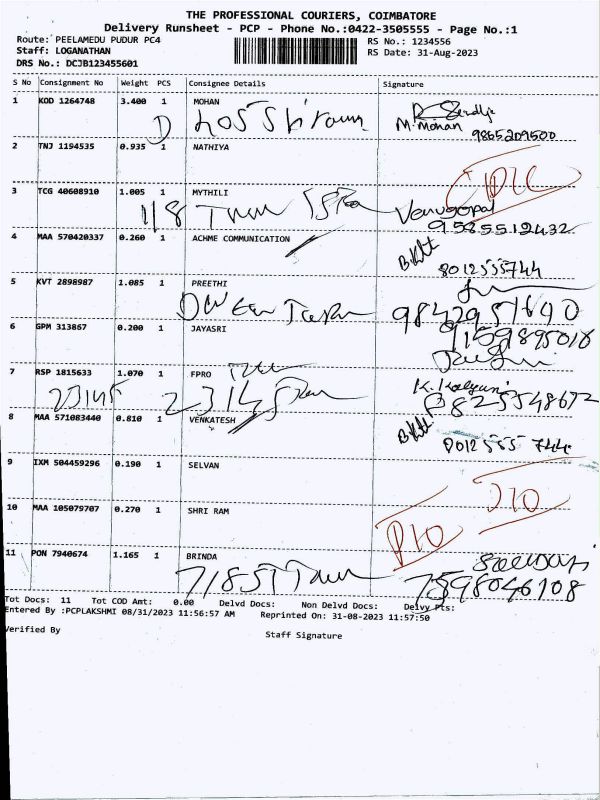 THE PROFESSIONAL COURIERS, COIMBATORE
Delivery Runsheet - PCP - Phone No.:0422-3505555 - Page No.:1
Route: PEELAMEDU PUDUR PC4
RS No.: 1234556
Staff: LOGANATHAN
RS Date: 31-Aug-2023
DRS No.: DCJB123455601
S No Consignment No Weight PCS Consignee Details Signature
1 KOD 1264748 3.400 1 MOHAN
M. Mohan 9865209500
2 TNJ 1194535 0.935 1 NATHIYA
3 TCG 40608910 1.005 1 MYTHILI
Venugopal
9585512432
4 MAA 570420337 0.260 1 ACHME COMMUNICATION
8012555744
5 KVT 2898987 1.085 1 PREETHI
9842951690
6 GPM 313867 0.200 1 JAYASRI
9159895016
7 RSP 1815633 1.070 1 FPRO
K. Kalyani
8 MAA 571083440 0.810 1 VENKATESH
8012555 744
9 IXM 504459296 0.190 1 SELVAN
10 MAA 105079707 0.270 1 SHRI RAM
11 PON 7940674 1.165 1 BRINDA
7598046108
Tot Docs: 11 Tot COD Amt: 0.00 Delvd Docs: Non Delvd Docs: Delvy Pts:
Entered By :PCPLAKSHMI 08/31/2023 11:56:57 AM Reprinted On: 31-08-2023 11:57:50
Verified By
Staff Signature